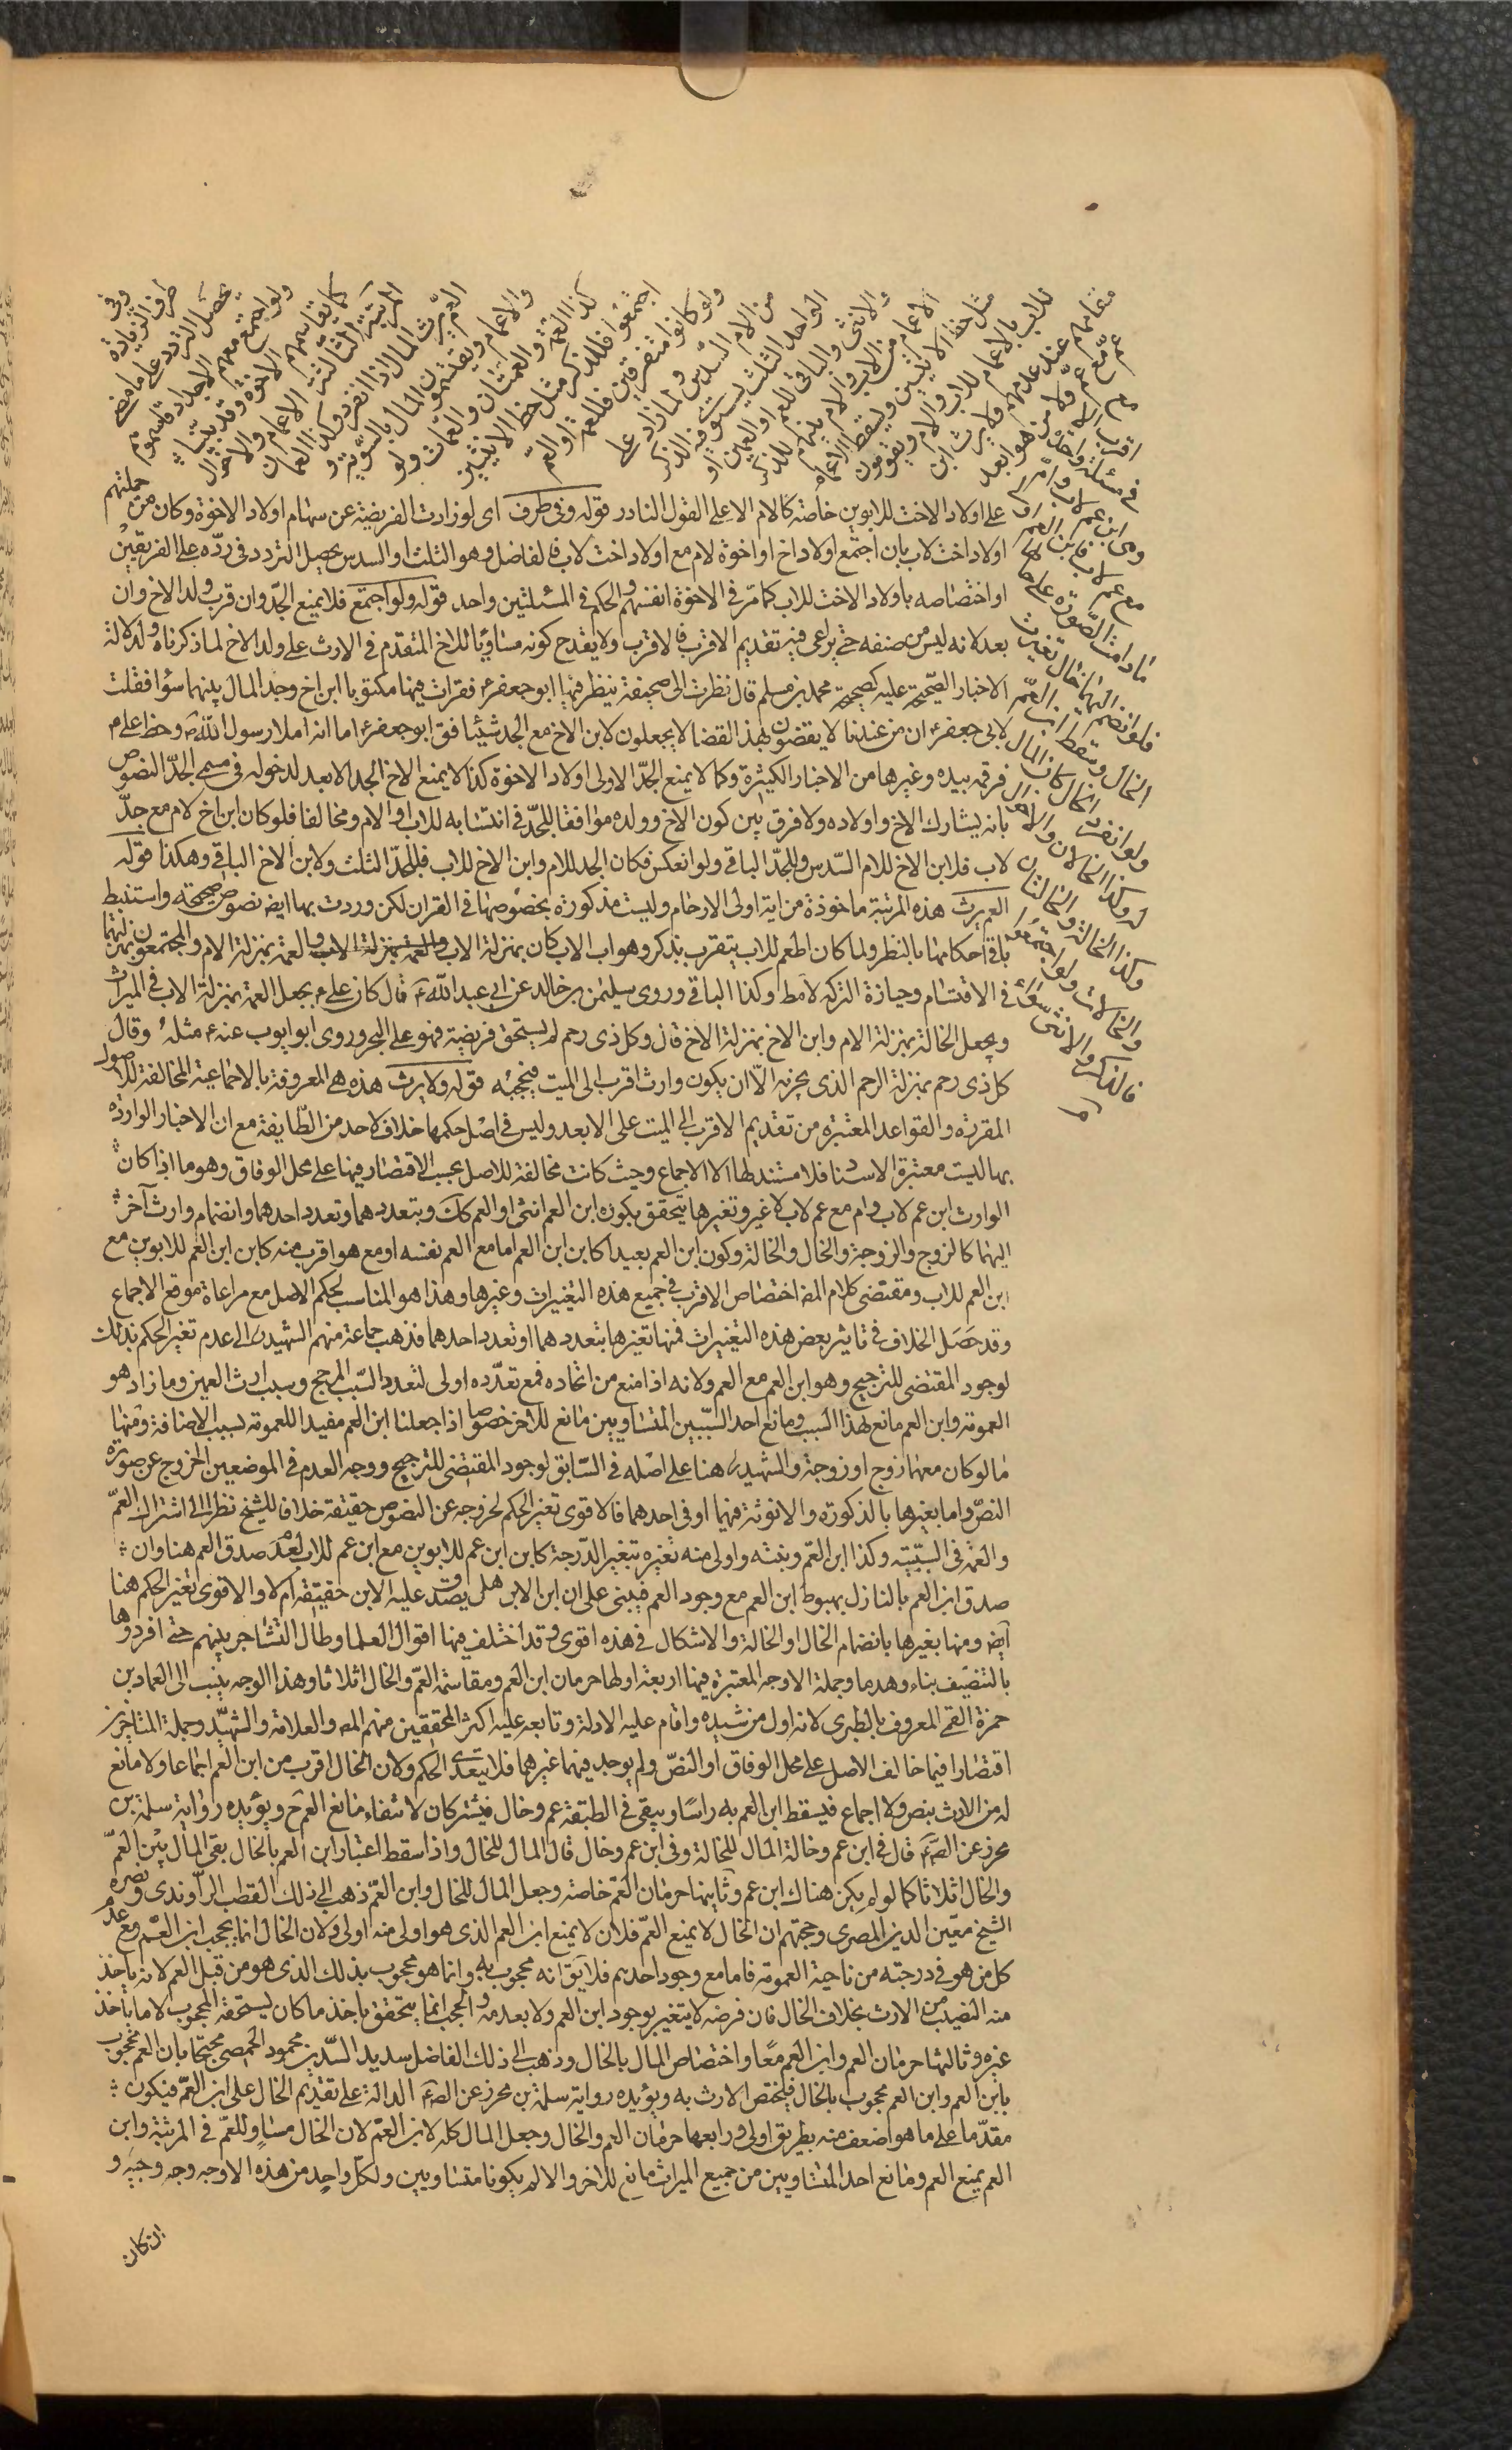 وفى
طرف الزيادة
يحصل التردد على ما مضى
ولو اجتمع معهم الاجداد قاسموهم
كما يقاسمهم الاخوة وقد بيناه
المرتبة الثالثة الاعمام والاخوال
العم يرث المال اذا انفرد وكذا العمان
والاعمام ويقتسمون المال بالسوية و
كذا العمة والعمتان والعمات ولو
اجتمعوا فللذكر مثل حظ الانثيين
ولو كانوا متفرقين فللعمة او العم
من الام السدس ولما زاد على
الواحد الثلث يستوى فيه الذكر
والانثى والباقى للعم او العمين او
الاعمام من الاب والام بينهم للذكر
مثل حظ الانثيين ويسقط الاعمام
للاب بالاعمام للاب والام ويقومون
مقامهم عند عدمهم ولا يرث ابن
عم مع عم ولا من هو ابعد
مع اقرب الا
فى مسئلة واحدة
وهى ابن عم لاب وام
مع عم لاب فابن العم اولى
ما دامت الصورة على حالها
فلو انضم اليهما خال تغيرت
الحال وسقط ابن العم
ولو انفرد الخال كان المال
له وكذا الخالان والاخوال
وكذا الخالة والخالتان
والخالات ولو اجتمعوا
فالذكر والانثى سواء
على اولاد الاخت للابوين خاصة كالام الا على القول النادر قوله وفى طرف اى لو زادت الفريضة عن سهام اولاد الاخوة وكان من جملتهم
اولاد اخت لاب بان اجتمع اولاد اخ او اخوة لام مع اولاد اخت لاب فالفاضل وهو الثلث او السدس يحصل التردد فى رده على الفريقين
او اختصاصه باولاد الاخت للاب كما مر فى الاخوة انفسهم والحكم فى المسئلتين واحد قوله ولو اجتمع فلا يمنع الجد وان قرب ولد الاخ وان
بعد لانه ليس من صنفه حتى يراعى فيه تقديم الاقرب فالاقرب ولا يقدح كونه مساويا للاخ المتقدم فى الارث على ولد الاخ لما ذكرناه ولدلالة
الاخبار الصحيحة عليه كصحيحة محمد بن مسلم قال نظرت الى صحيفة ينظر فيها ابو جعفر ع فقرات فيها مكتوبا ابن اخ وجد المال بينهما سواء فقلت
لابى جعفر ع ان من عندنا لا يقضون بهذا القضا لا يجعلون لابن الاخ مع الجد شيئا فق ابو جعفر ع اما انه املا رسول الله ص وخط على ع
من فرقه بيده وغيرها من الاخبار الكثيرة وكما لا يمنع الجد الاولى اولاد الاخوة كذا لا يمنع الاخ الجد الابعد لدخوله فى مسمى الجد النصوص
بانه يشارك الاخ واولاده ولا فرق بين كون الاخ وولده موافقا للجد فى انتسابه للاب او الام ومخالفا فلو كان ابن اخ لام مع جد
لاب فلابن الاخ للام السدس وللجد الباقى ولو انعكس فكان الجد للام وابن الاخ للاب فللجد الثلث ولابن الاخ الباقى وهكذا قوله
العم يرث هذه المرتبة ماخوذة من اية اولى الارحام وليست مذكورة بخصوصها فى القران لكن وردت بها ايض نصوص صحيحة واستنبط
باقى احكامها بالنظر ولما كان العم للاب يتقرب بذكر وهو اب الاب كان بمنزلة الاب والعمة بمنزلة الاب والعمة بمنزلة الام والمجتمعون بمنزلتهما
فى الاقتسام وحيازة التركة لامط وكذا الباقى وروى سليمن بن خالد عن ابى عبد الله ع قال كان على ع يجعل العمة بمنزلة الاب فى الميراث
ويجعل الخالة بمنزلة الام وابن الاخ بمنزلة الاخ قال وكل ذى رحم لم يستحق فريضة فهو على النحو وروى ابو ايوب عنه ع مثله وقال
كل ذى رحم بمنزلة الرحم الذى يجر به الا ان يكون وارث اقرب الى الميت فيحجبه قوله ولا يرث هذه هى المعروفة بالاجماعية المخالفة للاصول
المقررة والقواعد المعتبرة من تقديم الاقرب الى الميت على الابعد وليس فى اصل حكمها خلاف لاحد من الطايفة مع ان الاخبار الواردة
بها ليست معتبرة الاسناد فلا مستند لها الا الاجماع وحيث كانت مخالفة للاصل يجب الاقتصار فيها على محل الوفاق وهو ما اذا كان
الوارث ابن عم لاب وام مع عم لاب لا غير وتغيرها يتحقق بكون ابن العم انثى او العم كك وبتعددهما وتعدد احدهما وانضمام وارث آخر
اليهما كالزوج والزوجة والخال والخالة وكون ابن العم بعيدا كابن ابن العم اما مع العم نفسه او مع هو اقرب منه كابن ابن العم للابوين مع
ابن العم للاب ومقتضى كلام المص اختصاص الاقرب فى جميع هذه التغيرات وغيرها وهذا هو المناسب لحكم الاصل مع مراعاة موقع الاجماع
وقد حصل الخلاف فى تاثير بعض هذه التغيرات فمنها تغيرها بتعددهما او تعدد احدهما فذهب جماعة منهم الشهيد ره الى عدم تغير الحكم بذلك
لوجود المقتضى للترجيح وهو ابن العم مع العم ولانه اذا منع من اتحاده فمع تعدده اولى لتعدد السبب المرجح وسبب ارث العمين وما زاد هو
العمومة وابن العم مانع لهذا السبب ومانع احد السببين المتساويين مانع للاخر خصوصا اذا جعلنا ابن العم مفيد اللعمومة بسبب الاضافة ومنها
ما لو كان معهما زوج او زوجة والشهيد ره هنا على اصله فى السابق لوجود المقتضى للترجيح ووجه العدم فى الموضعين الخروج عن صورة
النص واما بغيرها بالذكورة والانوثة فيهما او فى احدهما فالاقوى تغير الحكم لخروجه عن النصوص حقيقة خلافا للشيخ نظرا الى اشتراك العم
والعمة فى السببية وكذا ابن العم وبنته واولى منه تغيره بتغير الدرجة كابن ابن عم للابوين مع ابن عم للاب لعدم صدق العم هنا وان
صدق ابن العم بالنازل بهبوط ابن العم مع وجود العم فيبنى على ان ابن الابن هل يصدق عليه الابن حقيقة ام لا والاقوى تغير الحكم هنا
ايض ومنها بغيرها بانضمام الخال او الخالة والاشكال فى هذه اقوى وقد اختلف فيها اقوال العلما وطال التشاجر بينهم حتى افردوها
بالتصنيف بناء وهدما وجملة الاوجه المعتبرة فيها اربعة اولها حرمان ابن العم ومقاسمة العم والخال اثلاثا وهذا الوجه ينسب الى العماد بن
حمزة القمى المعروف بالطبرى لانه اول من شيده واقام عليه الادلة وتابعه عليه اكثر المحققين منهم المص والعلامة والشهيد وجملة المتاخرين
اقتصارا فيما خالف الاصل على محل الوفاق او النص ولم يوجد فيهما غيرهما فلا يتعدى الحكم ولان الخال اقرب من ابن العم اجماعا ولا مانع
له من الارث بنص ولا اجماع فيسقط ابن العم به راسا ويبقى فى الطبقة عم وخال فيشتركان لانتفاء مانع العم ح ويؤيده رواية سلمة بن
محرز عن الص ع قال فى ابن عم وخالة المال للخالة وفى ابن عم وخال قال المال للخال واذا سقط اعتبار ابن العم بالخال بقى المال بين العم
والخال اثلاثا كما لو لم يكن هناك ابن عم وثانيها حرمان العم خاصة وجعل المال للخال وابن العم ذهب الى ذلك القطب الراوندى ونصره
الشيخ معين الدين المصرى وحجتهم ان الخال لا يمنع العم فلان لا يمنع ابن العم الذى هو اولى منه اولى ولان الخال انما يحجب ابن العم مع عدم
كل من هو فى درجته من ناحية العمومة فاما مع وجود احدهم فلا يق انه محجوب به وانما هو محجوب بذلك الذى هو من قبل العم لانه ياخذ
منه النصيب من الارث بخلاف الخال فان فرضه لا يتغير بوجود ابن العم ولا بعدمه والحجب انما يتحقق باخذ ما كان يستحقه المحجوب لا ما ياخذ
غيره وثالثها حرمان العم وابن العم معا واختصاص المال بالخال وذهب الى ذلك الفاضل سديد الدين محمود الحمصى محتجا بان العم محجوب
بابن العم وابن العم محجوب بالخال فيختص الارث به ويؤيده رواية سلمة بن محرز عن الص ع الدالة على تقديم الخال على ابن العم فيكون
مقدما على ما هو اضعف منه بطريق اولى ورابعها حرمان العم والخال وجعل المال كله لابن العم لان الخال مساو للعم فى المرتبة وابن
العم يمنع العم ومانع احد المتساويين من جميع الميراث مانع للاخر والا لم يكونا متساويين ولكل واحد من هذه الاوجه وجه وجيه و
ان كان